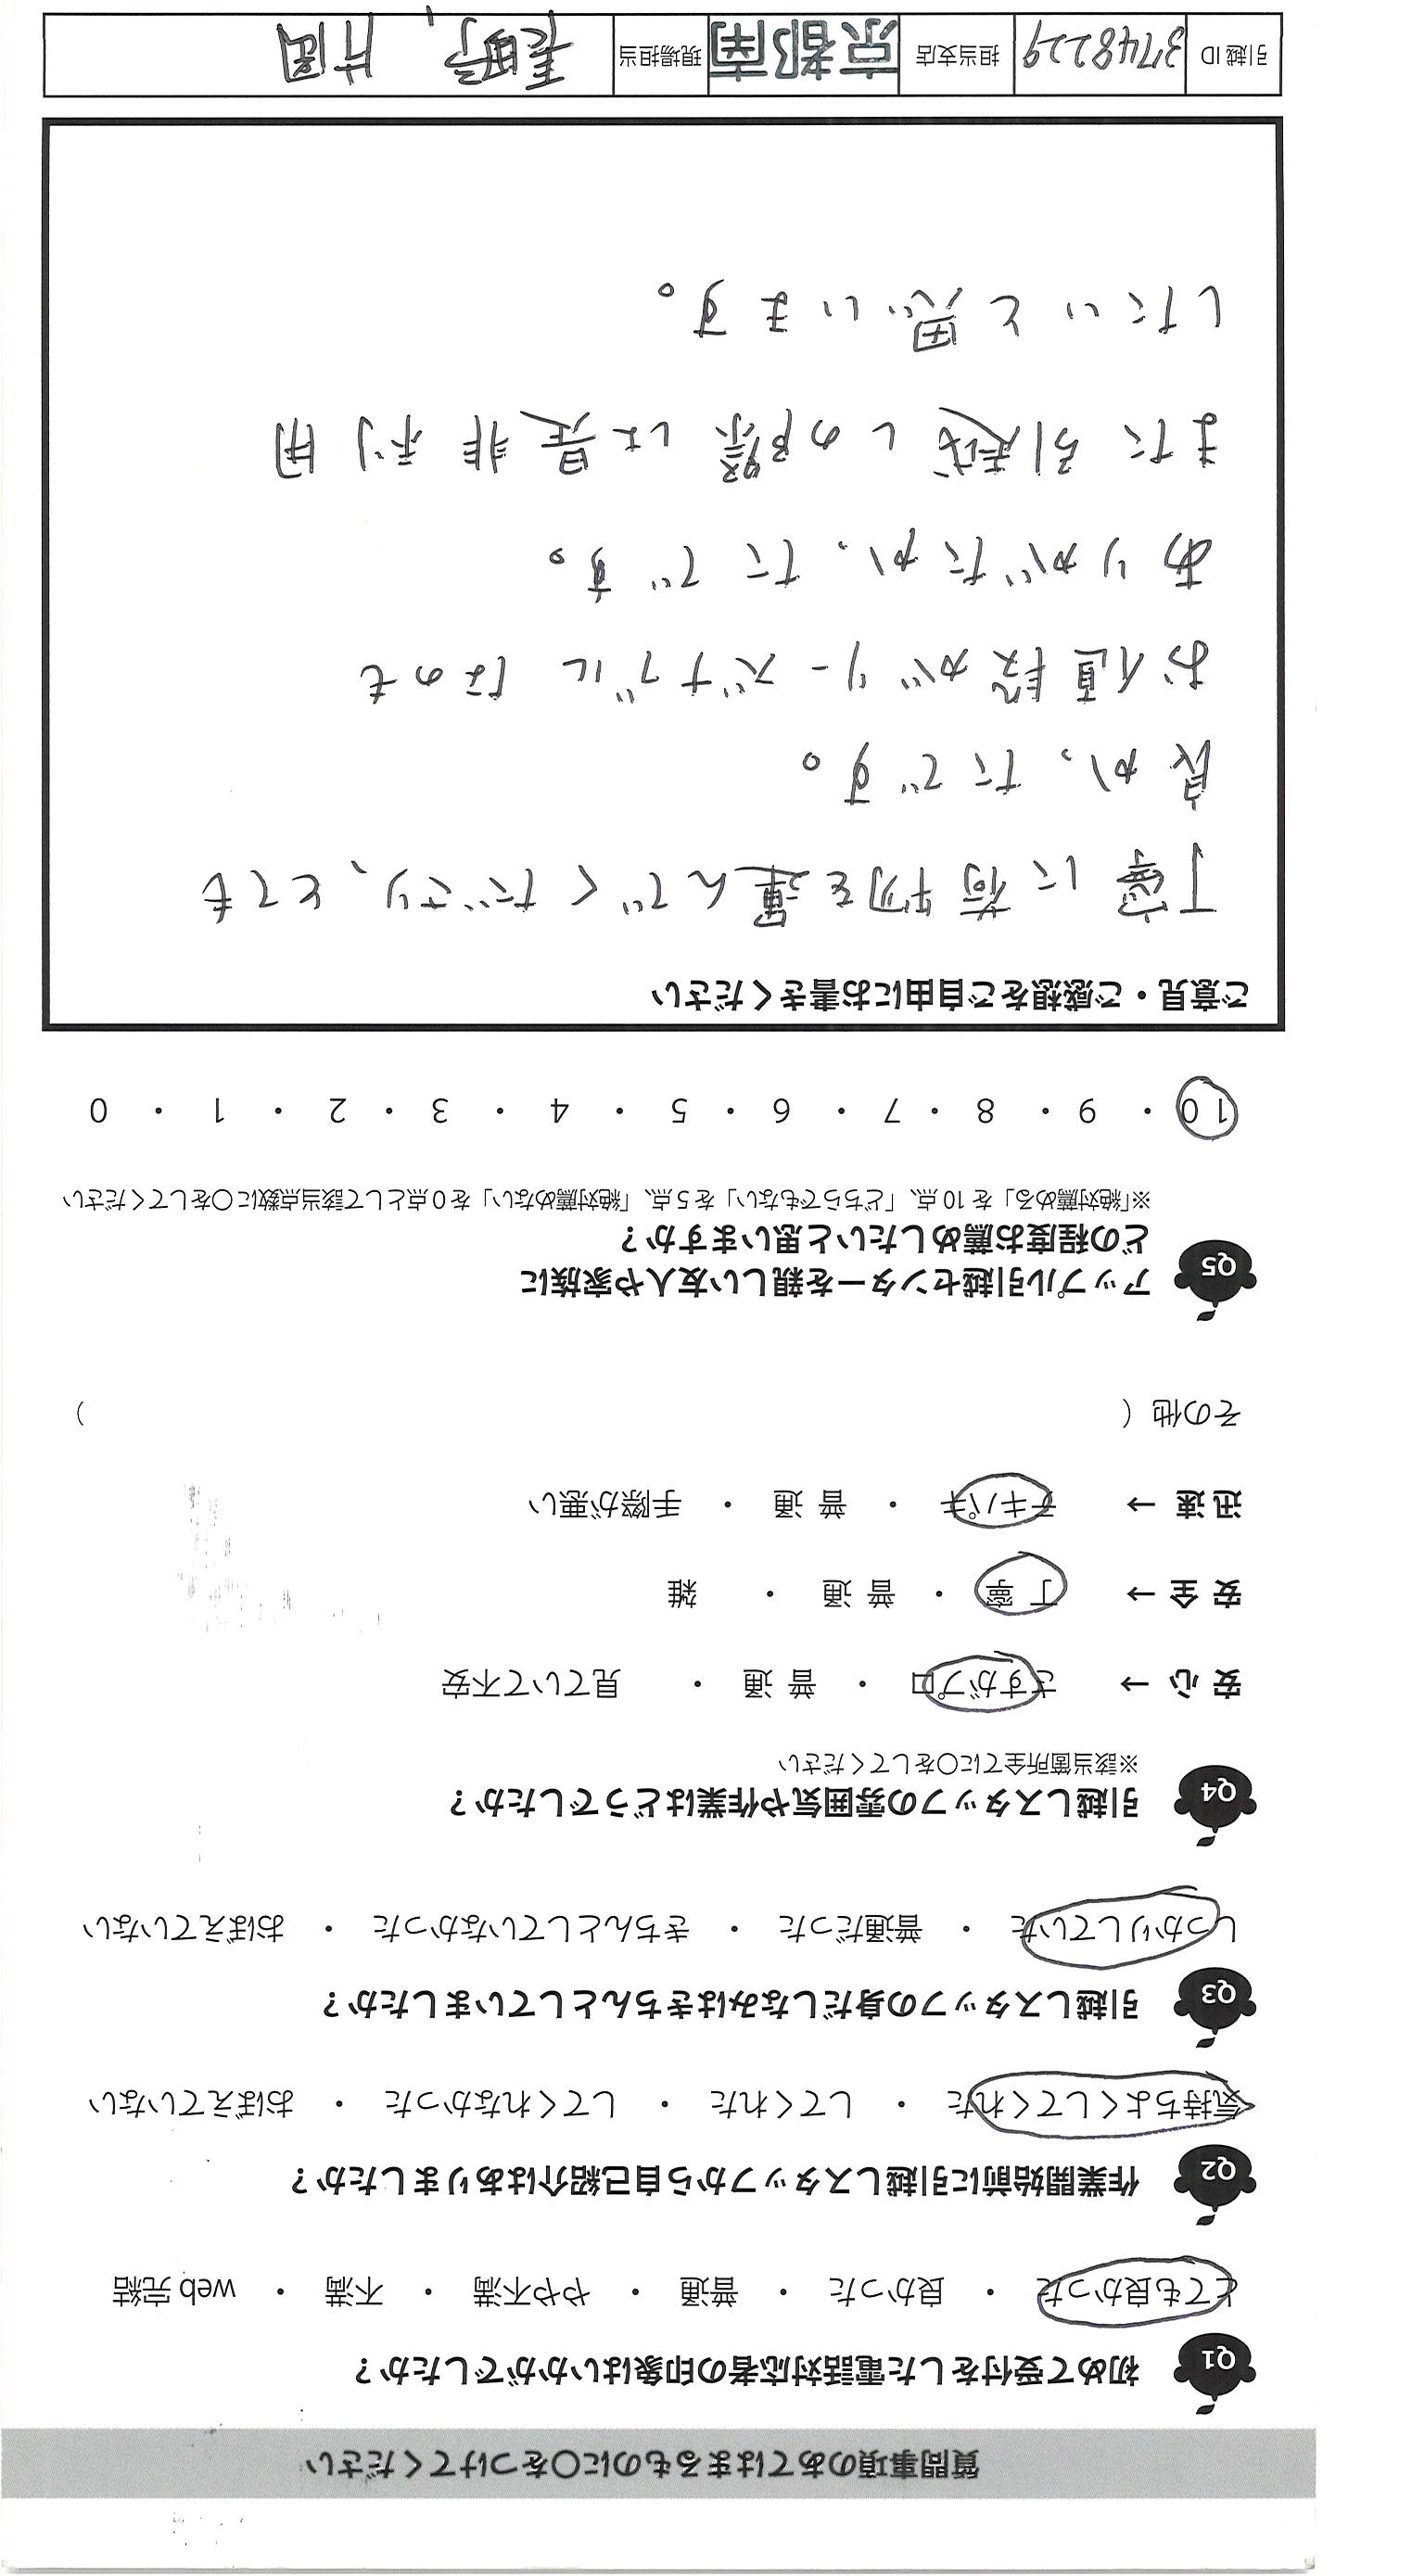 質問事項のあてはまるものに○をつけてください
Q1 初めて受付をした電話対応者の印象はいかがでしたか？
とても良かった ・ 良かった ・ 普通 ・ やや不満 ・ 不満 ・ web 完結
Q2 作業開始前に引越しスタッフから自己紹介はありましたか？
気持ちよくしてくれた ・ してくれた ・ してくれなかった ・ おぼえていない
Q3 引越しスタッフの身だしなみはきちんとしていましたか？
しっかりしていた ・ 普通だった ・ きちんとしていなかった ・ おぼえていない
Q4 引越しスタッフの雰囲気や作業はどうでしたか？
※該当箇所全てに○をしてください
安 心 → さすがプロ ・ 普 通 ・ 見ていて不安
安 全 → 丁 寧 ・ 普 通 ・ 雑
迅 速 → テキパキ ・ 普 通 ・ 手際が悪い
その他（ ）
Q5 アップル引越センターを親しい友人や家族に
どの程度お薦めしたいと思いますか？
※「絶対薦める」を 10 点、「どちらでもない」を 5 点、「絶対薦めない」を 0 点として該当点数に○をしてください
10 ・ 9 ・ 8 ・ 7 ・ 6 ・ 5 ・ 4 ・ 3 ・ 2 ・ 1 ・ 0
ご意見・ご感想をご自由にお書きください
丁寧に荷物を運んでくださり、とても
良かったです。
お値段がリーズナブルなのも
ありがたかったです。
また引越しの際は是非利用
したいと思います。
引越 ID 3748229 担当支店 京都南 現場担当 長野、片岡